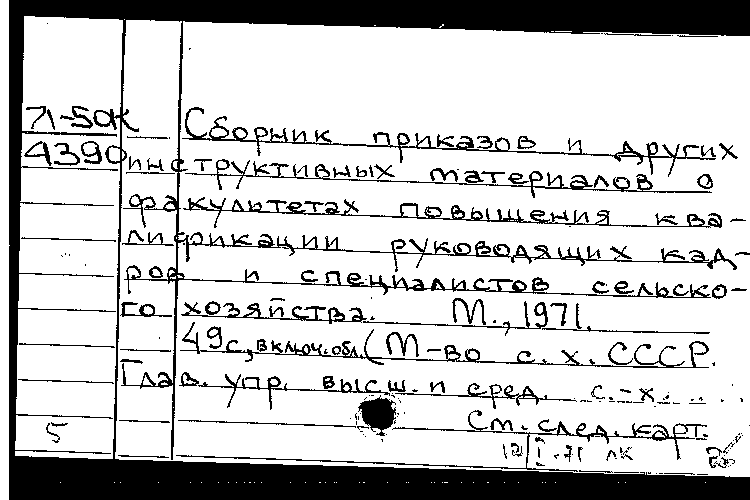 71-50К
4390
Сборник приказов и других
инструктивных материалов о
факультетах повышения ква-
лификации руководящих кад-
ров и специалистов сельско-
го хозяйства. М., 1971.
49с, включ. обл. (М-во с. х. СССР.
Глав. упр. высш. и сред. с.-х. . . .
См. след. карт.
5
12/I-71 лк